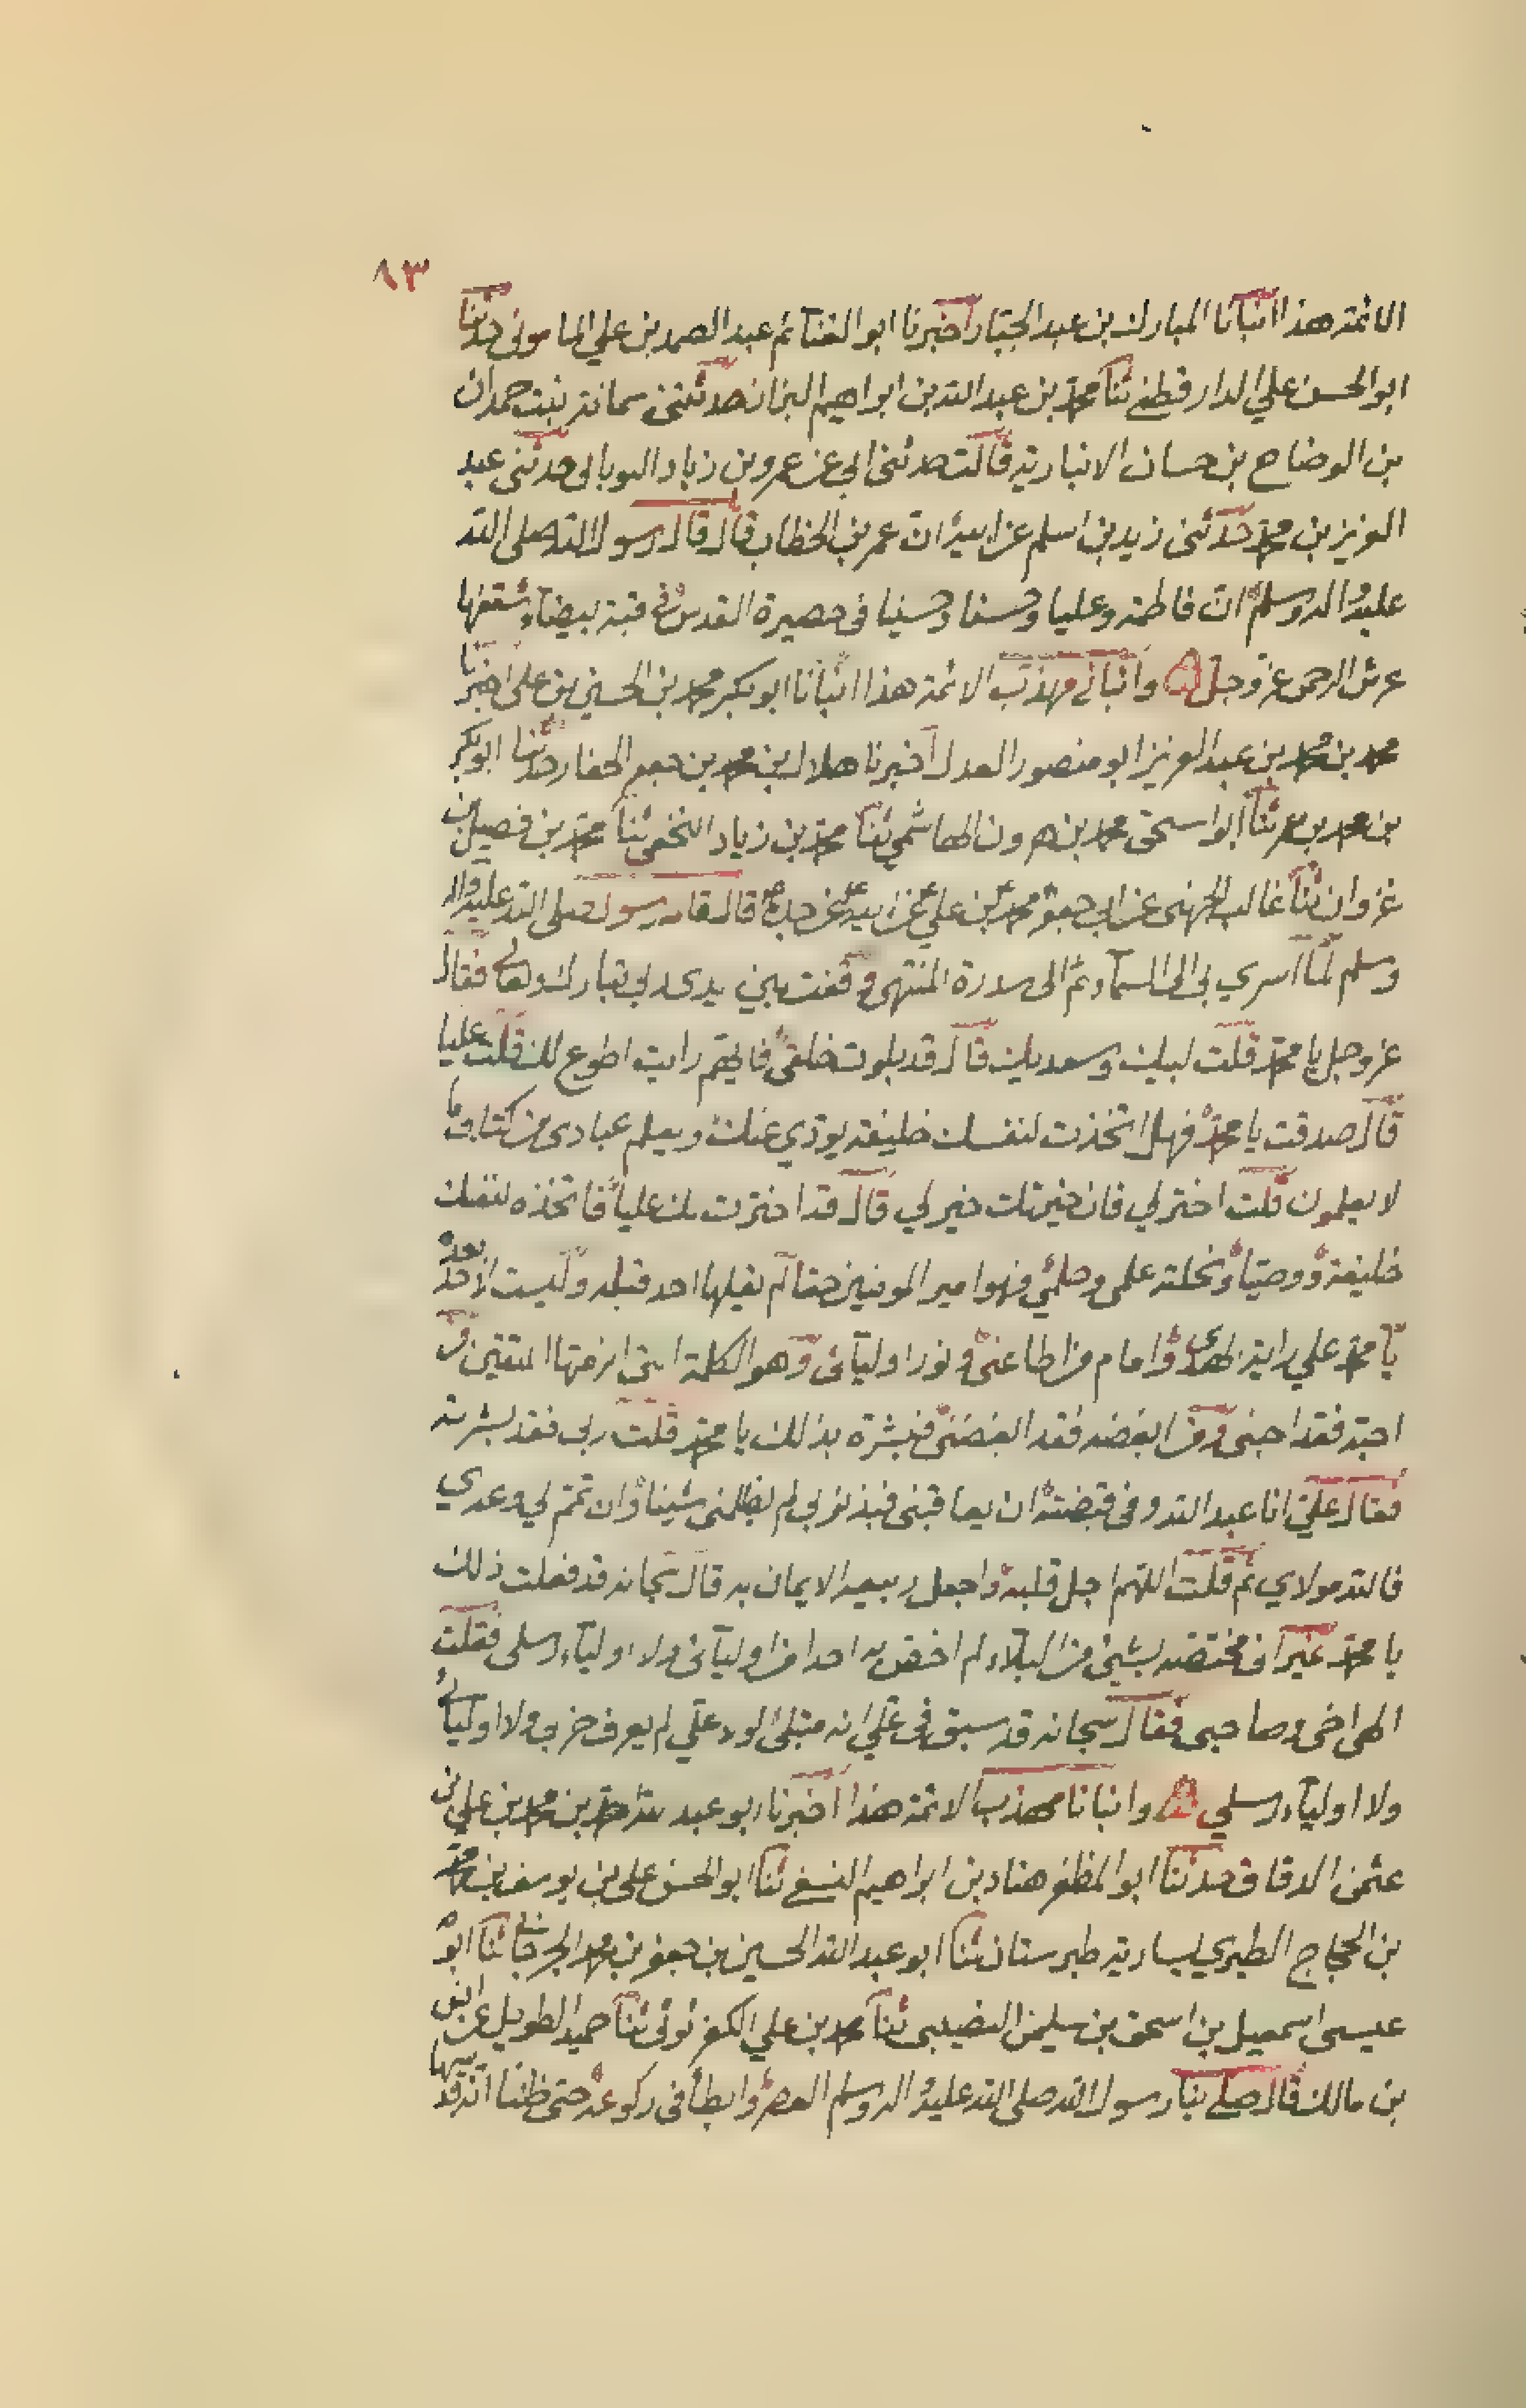 ٨٣
الائمة هذا انبأنا المبارك بن عبد الجبار اخبرنا ابو الغنآئم عبد الصمد بن علي المامونى حدثنا
ابو الحسن علي الدارقطني ثنا محمد بن عبد الله بن ابراهيم البزاز حدثتنى سمانة بنت حمدان
بن الوضاح بن حسان الانبارية قالت حدثنى ابي عن عمرو بن زياد الثوبانى حدثنى عبد
العزيز بن محمد حدثنى زيد بن اسلم عن ابيه ان عمر بن الخطاب قال قال رسول الله صلى الله
عليه واله وسلم ان فاطمة وعليا وحسنا وحسينا فى حصيرة القدس فى قبة بيضآء سقفها
عرش الرحمن عز وجل وانبانى مهذب الائمة هذا انبأنا ابو بكر محمد بن الحسين بن على اخبرنا
محمد بن محمد بن عبد العزيز ابو منصور العدل اخبرنا هلال بن محمد بن جعفر الحفار حدثنا ابو بكر
بن محمد بن عمر ثنا ابو اسحق محمد بن هرون الهاشمي ثنا محمد بن زياد النخعى ثنا محمد بن فضيل بن
غزوان ثنا غالب الجهنى عن ابى جعفر محمد بن علي عن ابيه عن جده قال قال رسول صلى الله عليه واله
وسلم لمآ اسري بى الى السمآء ثم الى سدرة المنتهى وقفت بين يدى ربى تبارك وتعالى فقال
عز وجل يا محمد قلت لبيك وسعديك قال قد بلوت خلقى فايهم رايت اطوع لك قلت عليا
قال صدقت يا محمد فهل اتخذت لنفسك خليفة يودي عنك ويعلم عبادى من كتابى ما
لا يعلمون قلت اختر لي فان خيرتك خير لي قال قد اخترت لك عليا فاتخذه لنفسك
خليفة ووصيا ونحلته علمى وحلمي فهو امير المومنين حقا لم يقلها احد قبله وليست لاحد بعده
يا محمد علي راية الهدى وامام من اطاعنى ونور اوليآئى وهو الكلمة التى الزمتها المتقين من
احبه فقد احبنى ومن ابغضه فقد ابغضنى فبشره بذلك يا محمد قلت ربى فقد بشرته
فقال علي انا عبد الله وفى قبضته ان يعاقبنى فبذنوبى لم يظلمنى شيئا وان تمم لي وعدي
فالله مولاي ثم قلت اللهم اجل قلبه واجعل ربيعه الايمان به قال سبحانه قد فعلت ذلك
يا محمد غير انى مختصه بشىء من البلآء لم اخص به احدا من اوليآئى ولا اوليآء رسلى فقلت
الهى اخى وصاحبى فقال سبحانه قد سبق فى علمى انه مبتلى لولا علي لم يعرف حزبى ولا اوليآئى
ولا اوليآء رسلي وانبانا مهذب الائمة هذا اخبرنا ابو عبد الله احمد بن محمد بن علي بن
عثمن الدقاق حدثنا ابو المظفر هناد بن ابراهيم النسفى ثنا ابو الحسن على بن يوسف بن محمد
بن الحجاج الطبري بسارية طبرستان ثنا ابو عبد الله الحسين بن جعفر بن محمد الجرجانى ثنا ابو
عيسى اسمعيل بن اسحق بن سليمن النصيبى ثنا محمد بن علي الكفرثوثى ثنا حميد الطويل عن انس
بن مالك قال صلى بنا رسول الله صلى الله عليه واله وسلم العصر وابطأ فى ركوعه حتى ظننا انه قد سها